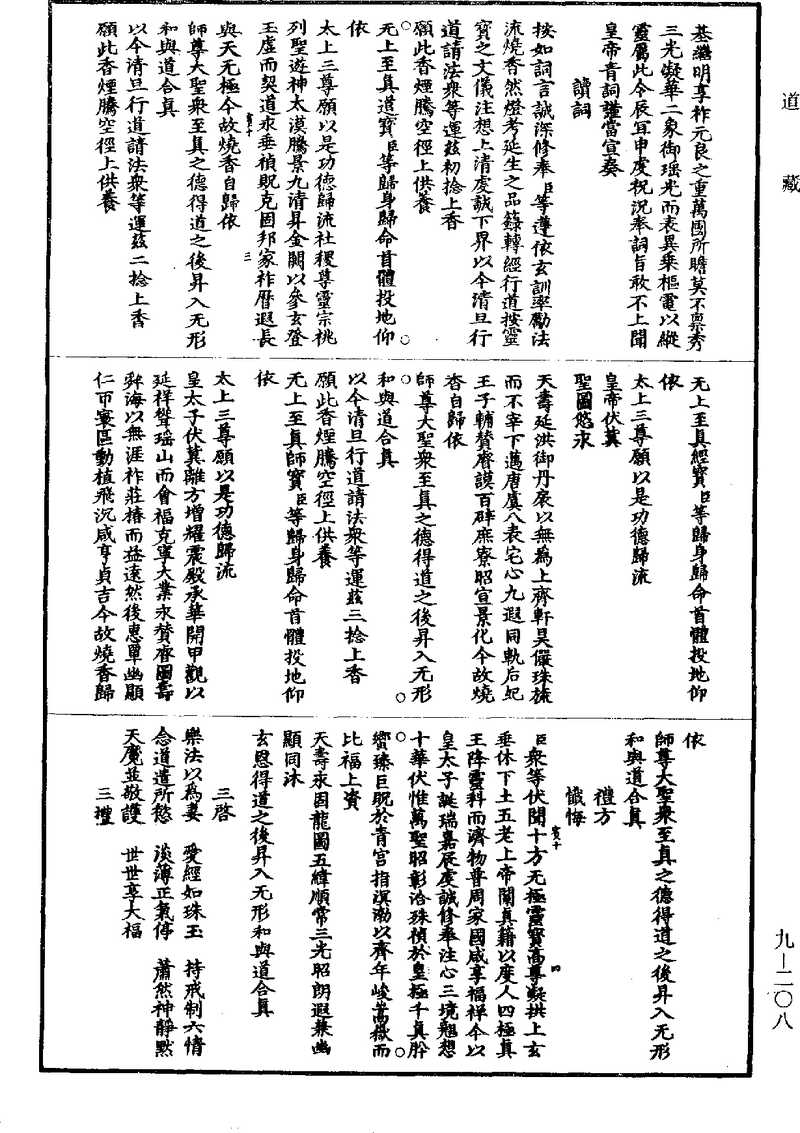 道藏
基繼明享祚元良之重萬國所瞻莫不稟秀
三光凝華二象御瑤光而表異乘樞電以縱
靈屬此令辰冝申虔祝況奉詞旨敢不上聞
皇帝青詞謹當宣奏
讀詞
按如詞言誠深修奉臣等遵依玄訓率勵法
流燒香然燈考延生之品籙轉經行道按靈
寶之文儀注想上清虔誠下界以今清旦行
道請法衆等運茲初捻上香
願此香煙騰空徑上供養
无上至真道寶臣等歸身歸命首體投地仰
依
太上三尊願以是功德歸流社稷尊靈宗祧
列聖遊神太漠騰景九清昇金闕以參玄登
玉虛而契道永垂禎貺克固邦家祚曆遐長
與天无極今故燒香自歸依
師尊大聖衆至真之德得道之後昇入无形
和與道合真
以今清旦行道請法衆等運茲二捻上香
願此香煙騰空徑上供養
无上至真經寶臣等歸身歸命首體投地仰
依
太上三尊願以是功德歸流
皇帝伏冀
聖圖悠永
天壽延洪御丹扆以無爲上齊軒昊儼珠旒
而不宰下邁唐虞八表宅心九遐同軌后妃
王子輔賛齊謨百辟庶寮昭宣景化今故燒
香自歸依
師尊大聖衆至真之德得道之後昇入无形
和與道合真
以今清旦行道請法衆等運茲三捻上香
願此香煙騰空徑上供養
无上至真師寶臣等歸身歸命首體投地仰
依
太上三尊願以是功德歸流
皇太子伏冀離方增耀震殿承華開甲觀以
延祥聳瑤山而會福克寧大業永賛齊圖壽
舜海以無涯祚莊椿而益遠然後惠單幽顯
仁帀寰區動植飛沉咸亨貞吉今故燒香歸
依
師尊大聖衆至真之德得道之後昇入无形
和與道合真
禮方
懺悔
臣衆等伏聞十方无極靈寶高尊凝拱上玄
垂休下土五老上帝闡真籍以度人四極真
王降靈科而濟物普周家國咸享福祥今以
皇太子誕瑞嘉辰虔誠修奉注心三境翹想
十華伏惟萬聖昭彰洽殊禎於皇極千真肸
嚮臻巨貺於青宮指溟渤以齊年峻嵩嶽而
比福上資
天壽永固龍圖五緯順常三光昭朗遐兼幽
顯同沐
玄恩得道之後昇入无形和與道合真
三啓
樂法以爲妻　愛經如珠玉　持戒制六情
念道遣所慾　淡薄正氣停　蕭然神靜默
天魔並敬護　世世享大福
三禮
九—二〇八